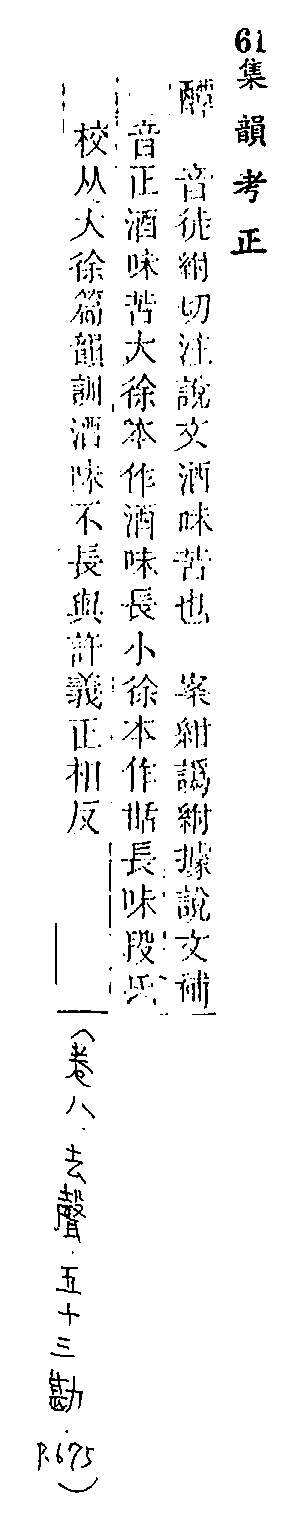 61 集韻考正
醰　音徒紺切注說文酒味苦也　案紺譌紨據說文補
音正酒味苦大徐本作酒味長小徐本作甛長味段氏
校从大徐篇韻訓酒味不長與許義正相反
(卷八·去聲·五十三勘·P.675)